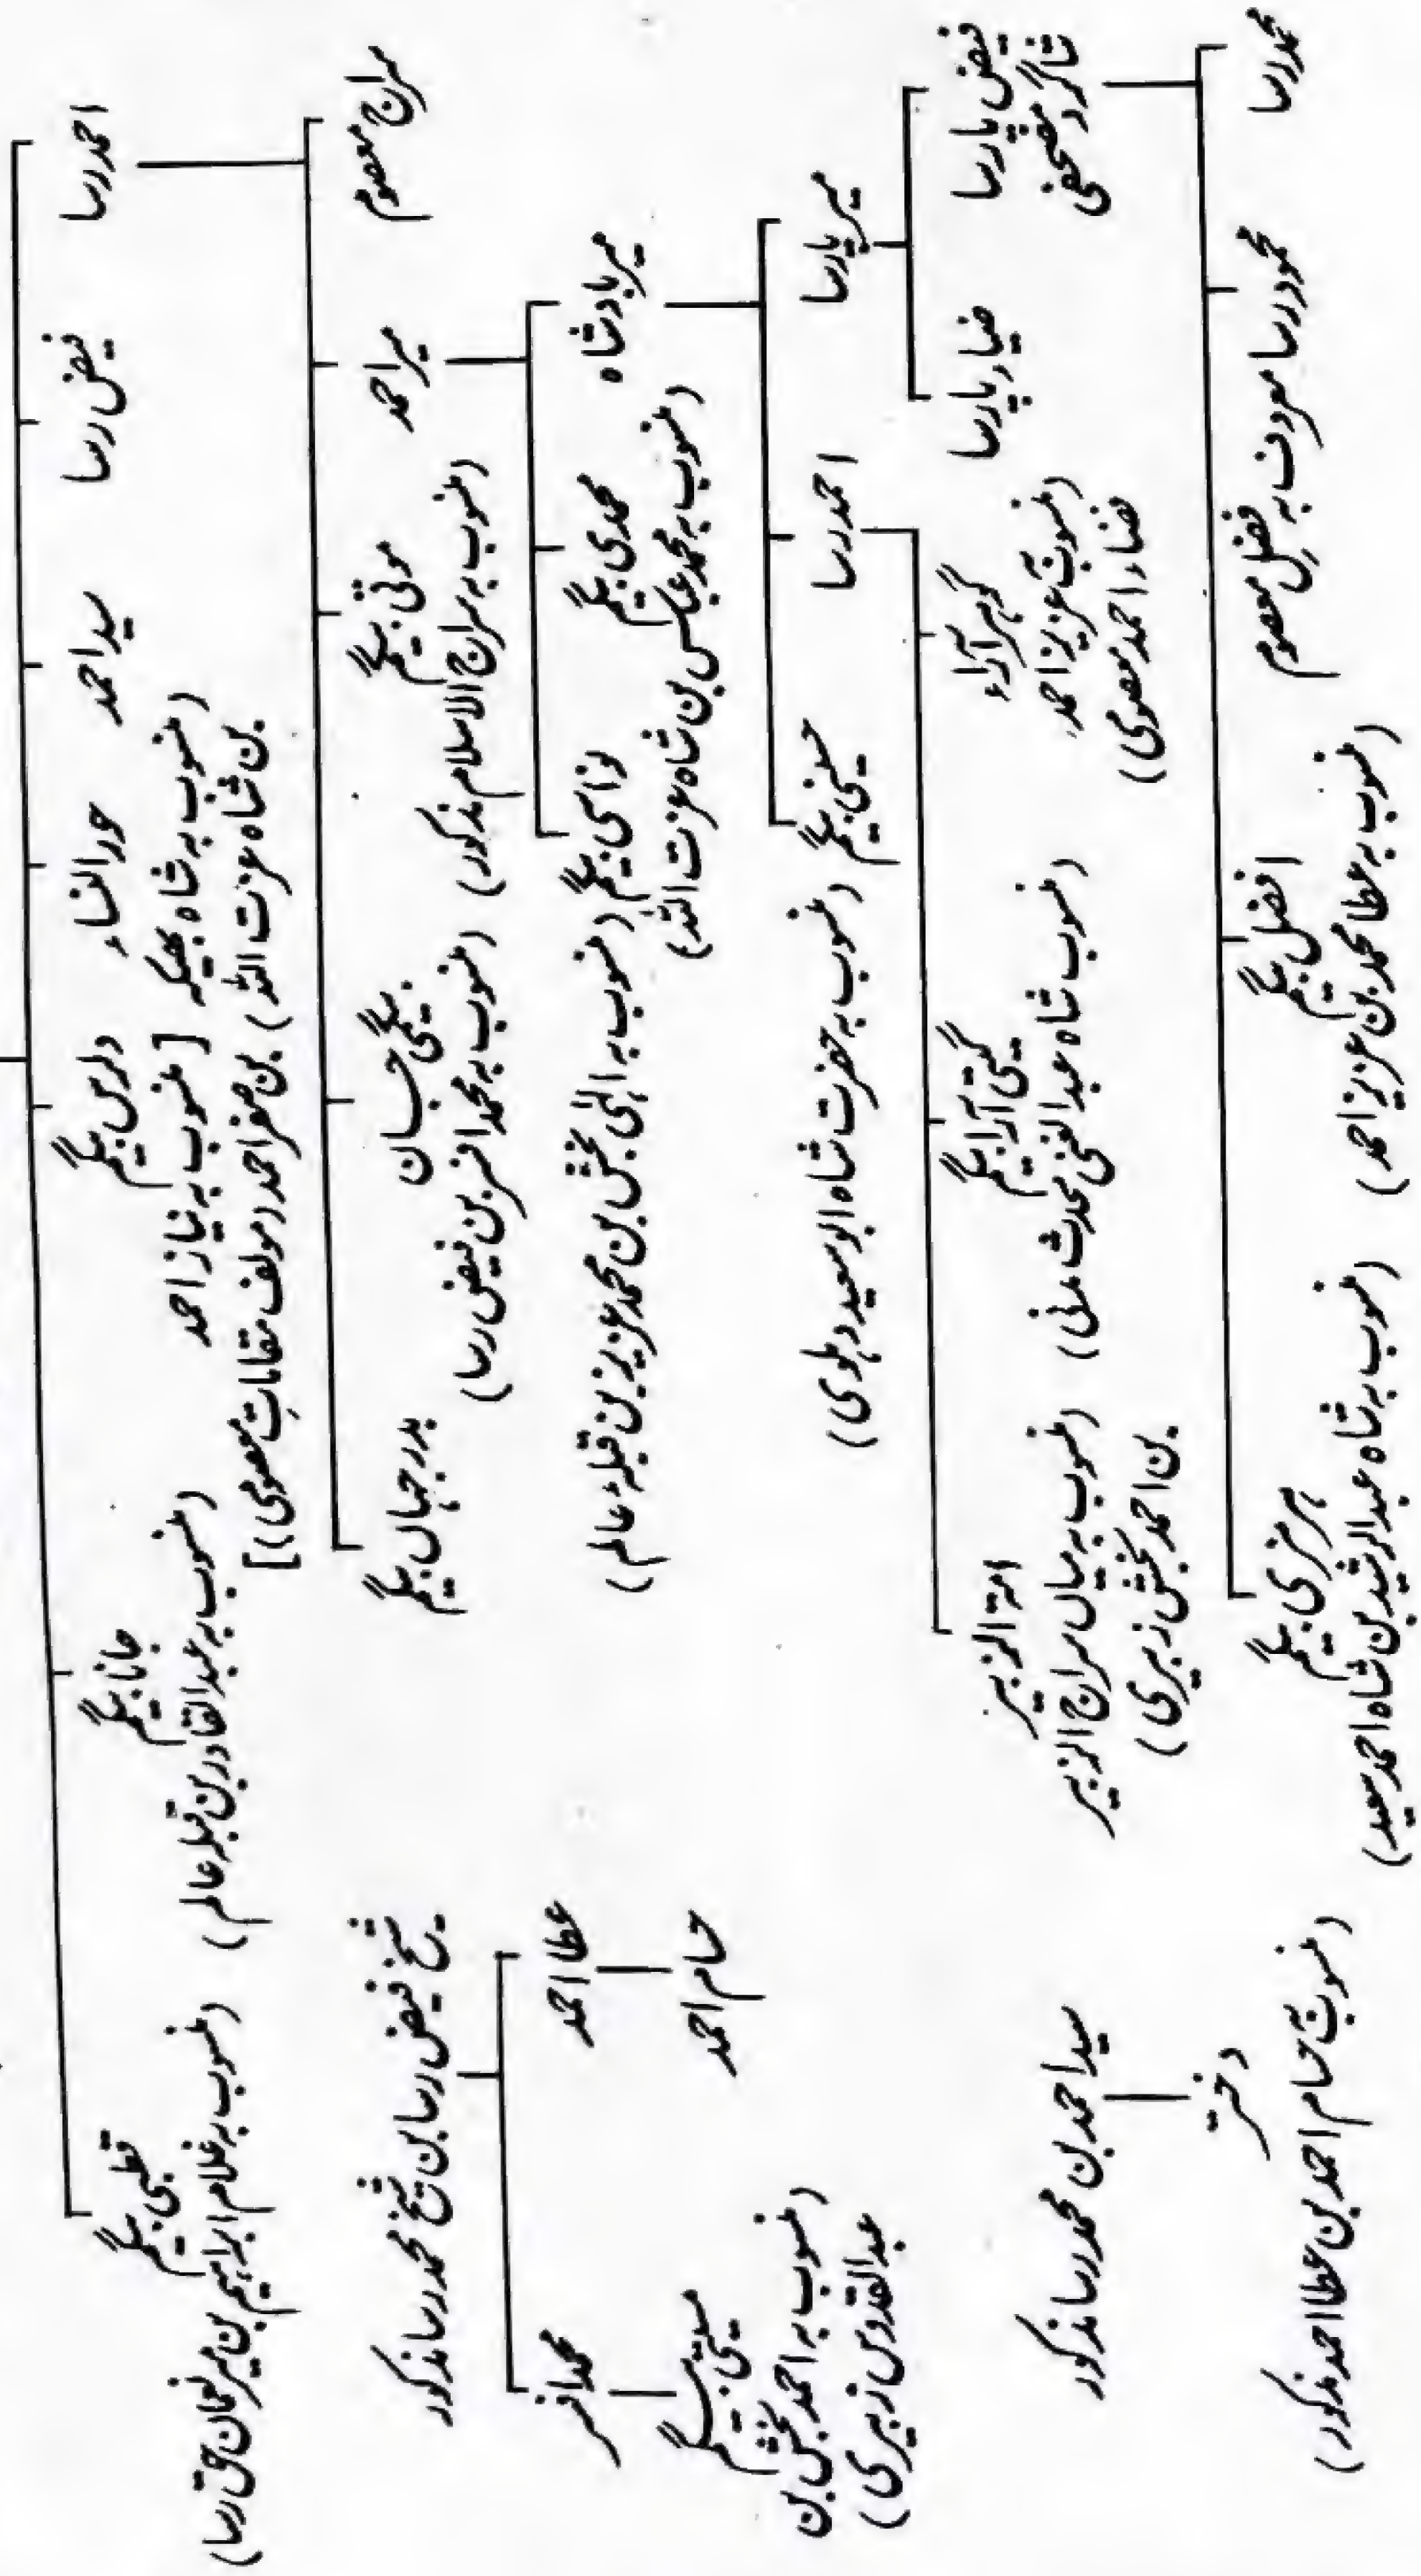 احمد رسا
فیض رسا
سید احمد
حور النساء
(منسوب بہ شاہ بھیکہ
بن شاہ عزت اللہ)
دلرس بیگم
[منسوب بہ نیاز احمد
بن صفر احمد (مولف مقاماتِ معصومی)]
جانا بیگم
(منسوب بہ عبدالقادر بن قبلہ عالم)
قطبی بیگم
(منسوب بہ غلام ابراہیم بن میر نعمان حق رسا)
سراج معصوم
میر احمد
موتی بیگم
(منسوب بہ سراج الاسلام مذکور)
بیگمی جان
(منسوب بہ محمد افسر بن فیض رسا)
بدر جہاں بیگم
میر بادشاہ
محمدی بیگم
(منسوب بہ محمد عباس بن شاہ عزت اللہ)
نواسی بیگم
(منسوب بہ الٰہی بخش بن محمد عزیز بن قبلۂ عالم)
میر پارسا
احمد رسا
حسینی بیگم
(منسوب بہ حضرت شاہ ابو سعید دہلوی)
فیض پارسا
شاگرد مصحفی
ضیاء پارسا
گوہر آراء
(منسوب بہ عزیز احمد
ضیاء احمد معصومی)
گیتی آرا بیگم
(منسوب شاہ عبدالغنی محدث مدنی)
امۃ الزبیر
(منسوب بہ میاں سراج الزبیر
بن احمد بخش زبیری)
محمد رسا
محمود رسا معروف بہ
فضلِ معصوم
افضل بیگم
(منسوب بہ عطا محمد بن عزیز احمد)
ہرمزی بیگم
(منسوب بہ شاہ عبدالرشید بن شاہ احمد سعید)
شیخ فیض رسا بن شیخ محمد رسا مذکور
عطا احمد
حسام احمد
محمد افسر
بیگم
(منسوب بہ احمد بخش بن
عبدالقدوس زبیری)
سید احمد بن محمد رسا مذکور
دختر
(منسوب بہ حسام احمد بن عطا احمد مذکور)